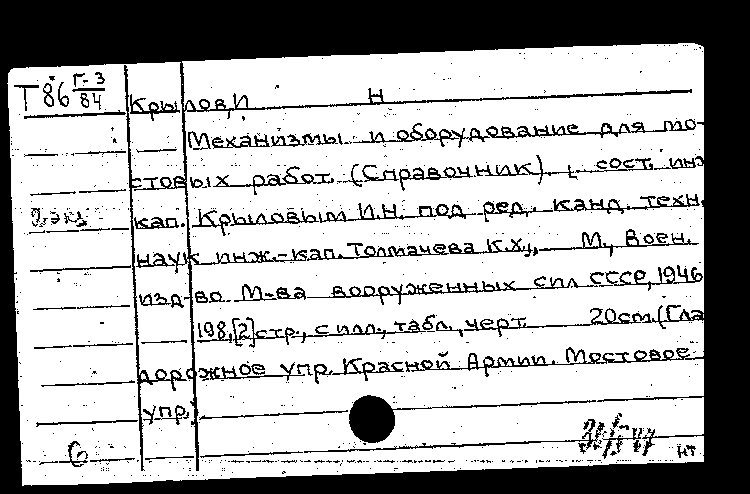 Т 86 Г-3/84
Крылов, И Н
Механизмы и оборудование для мо-
стовых работ. (Справочник). сост. инж
2 экз кап. Крыловым И.Н. под ред. канд. техн.
наук инж.-кап. Толмачева К.Х., М., Воен.
изд-во М-ва вооруженных сил СССР, 1946
198,[2]стр., с илл., табл., черт. 20см. (Гла
дорожное упр. Красной Армии. Мостовое
упр.)
6
нт